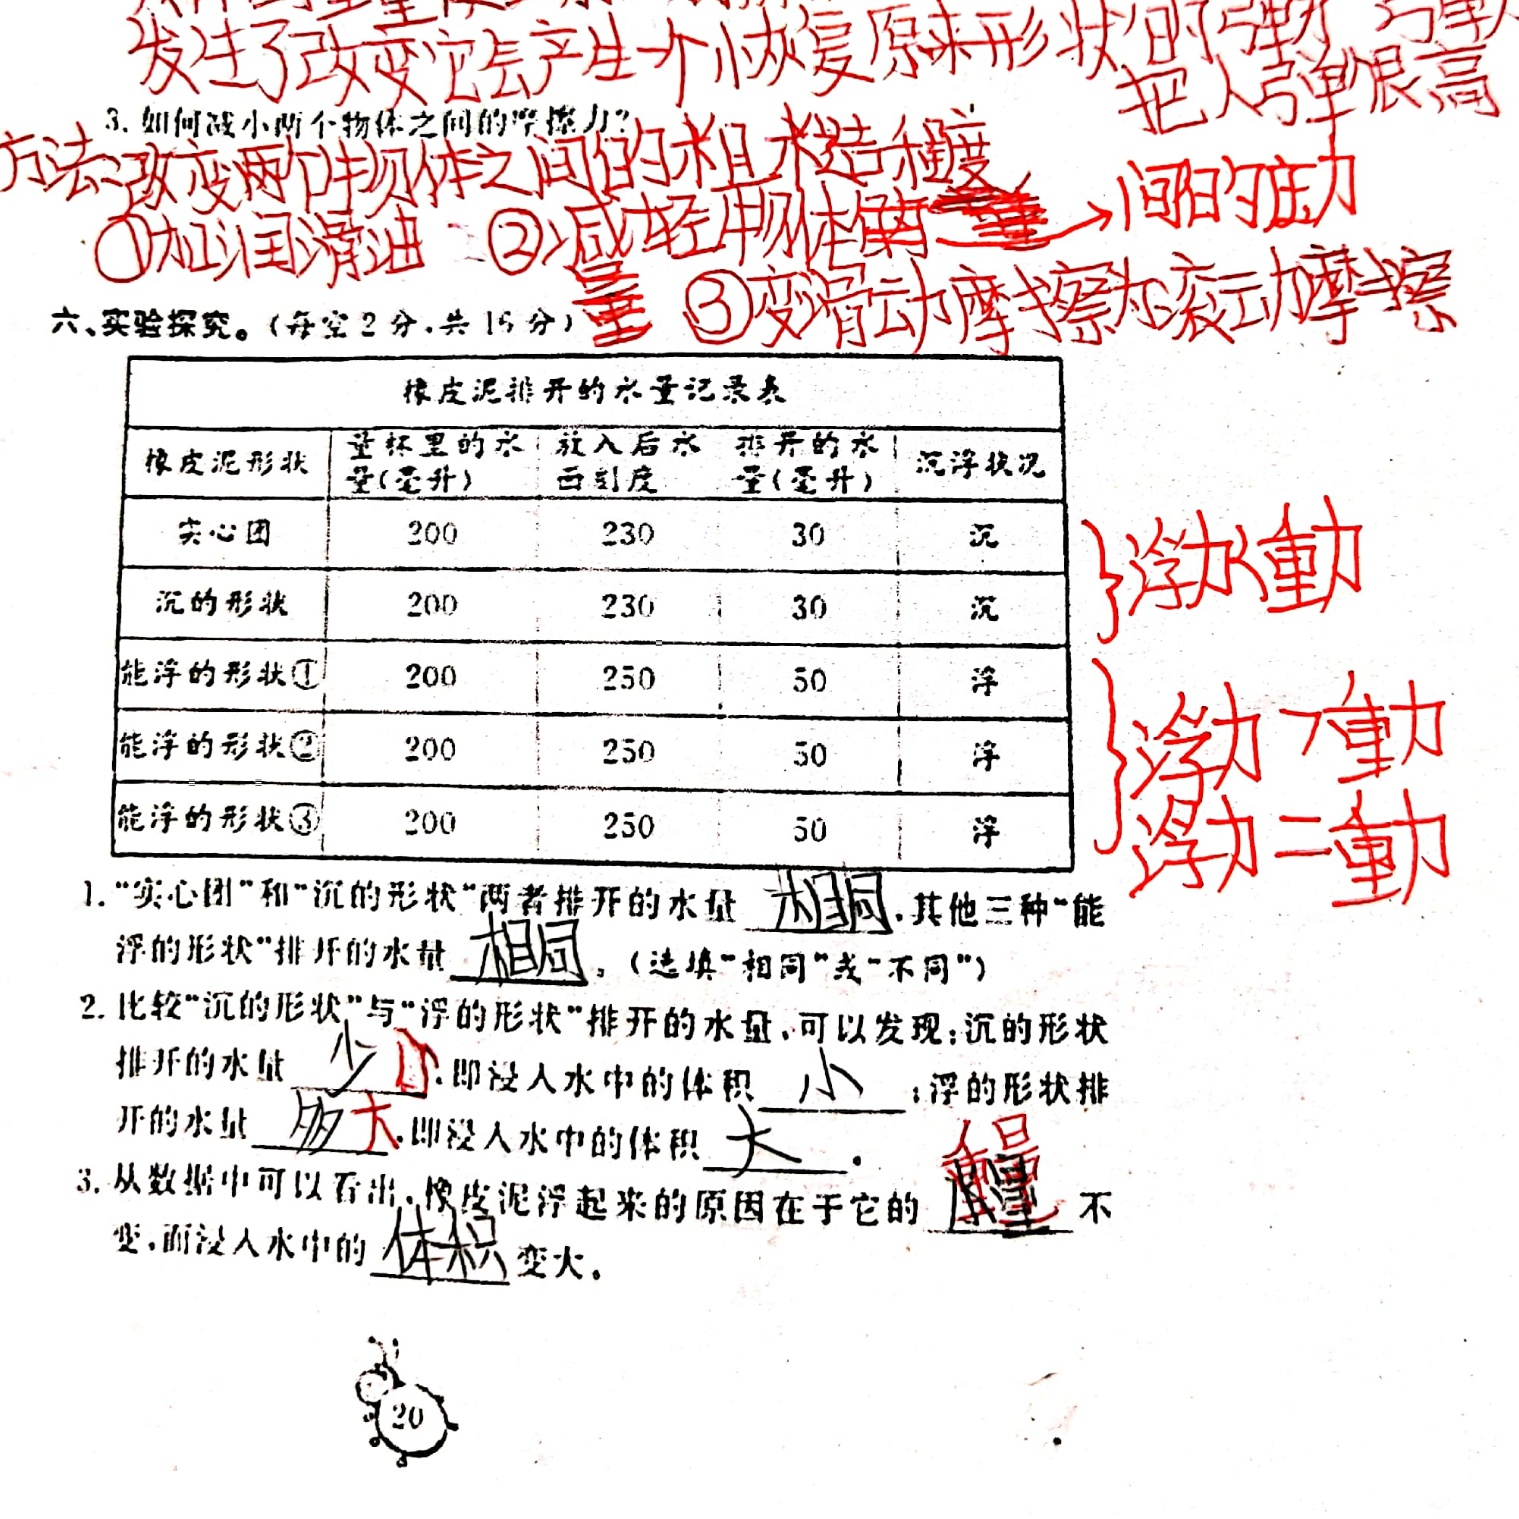 发生了改变它会产生一个恢复原来形状的弹力
把人弹很高
3. 如何减小两个物体之间的摩擦力?
方法:改变两个物体之间的粗糙程度
间的压力
①加润滑油 ②减轻物体重量
③变滑动摩擦为滚动摩擦
六、实验探究。(每空2分,共16分)
橡皮泥排开的水量记录表
橡皮泥形状 量杯里的水量(毫升) 放入后水面刻度 排开的水量(毫升) 沉浮状况
实心团 200 230 30 沉
沉的形状 200 230 30 沉
浮力<重力
能浮的形状① 200 250 50 浮
能浮的形状② 200 250 50 浮
浮力>重力
能浮的形状③ 200 250 50 浮
浮力=重力
1. “实心团”和“沉的形状”两者排开的水量 相同 ,其他三种“能
浮的形状”排开的水量 相同 。(选填“相同”或“不同”)
2. 比较“沉的形状”与“浮的形状”排开的水量,可以发现:沉的形状
排开的水量 少 ,即浸入水中的体积 小 ;浮的形状排
开的水量 多 大 ,即浸入水中的体积 大 。
3. 从数据中可以看出,橡皮泥浮起来的原因在于它的 重量 不
变,而浸入水中的 体积 变大。
20